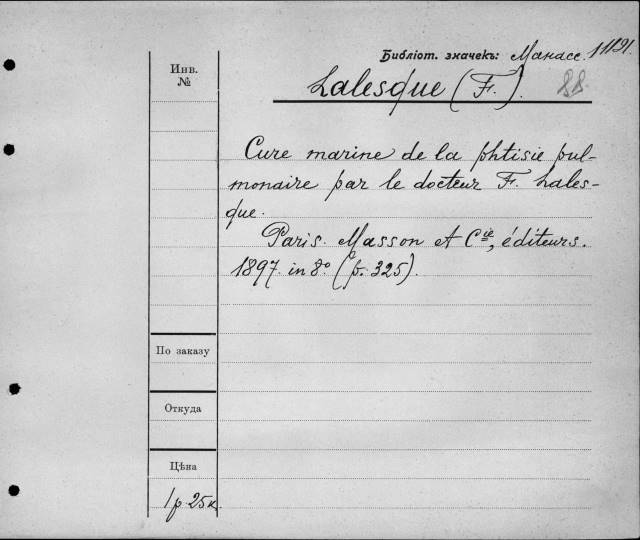 Библіот. значекъ: Манасс. 11121.
88.
Lalesque (F.).
Инв.
№
Cure marine de la phtisie pul-
monaire par le docteur F. Lales-
que.
Paris. Masson et Cie, éditeurs.
1897. in 8° (p. 325).
По заказу
Откуда
Цѣна
1 р 25 к